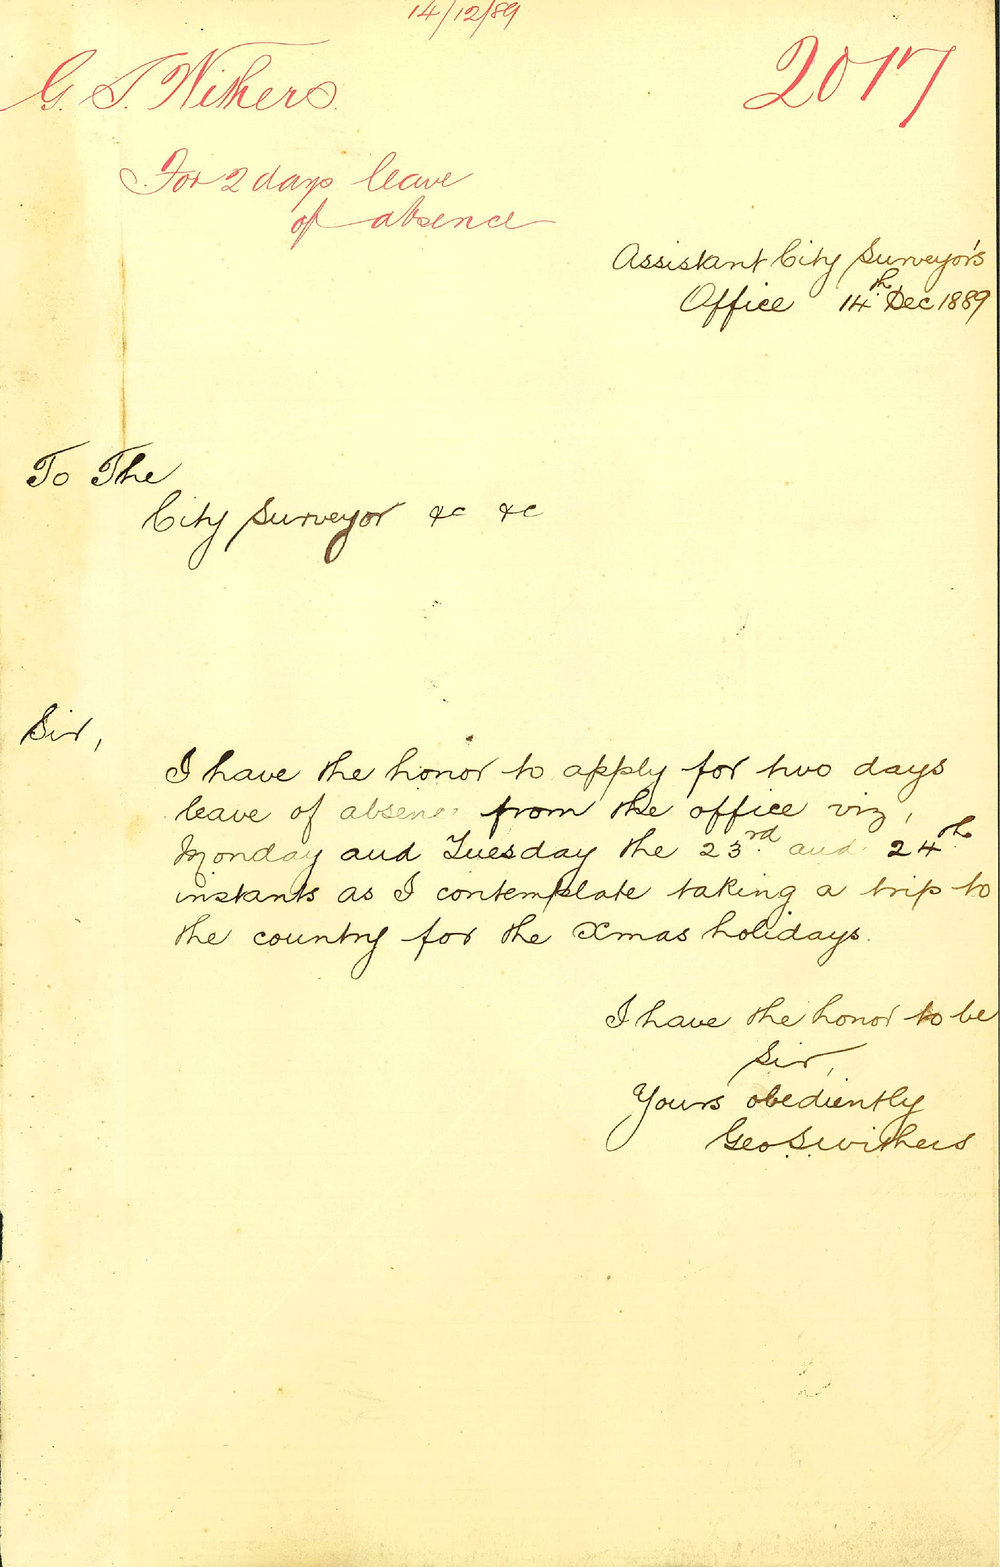 14/12/89
G. S. Withers
2017
For 2 days leave
of absence
Assistant City Surveyor's
Office 14th Dec 1889
To The
City Surveyor &c &c
Sir,
I have the honor to apply for two days
leave of absence from the office viz,
Monday and Tuesday the 23rd and 24th
instants as I contemplate taking a trip to
the country for the Xmas holidays.
I have the honor to be
Sir,
Yours obediently
Geo. S. Withers